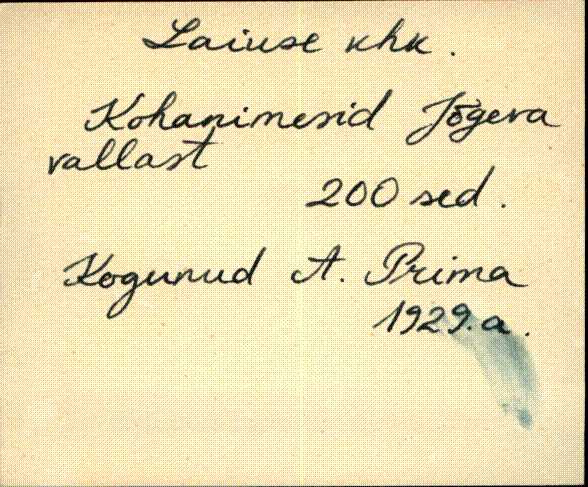 Laiuse khk.
Kohanimesid Jõgeva
vallast
200 sed.
Kogunud A. Prima
1929.a.